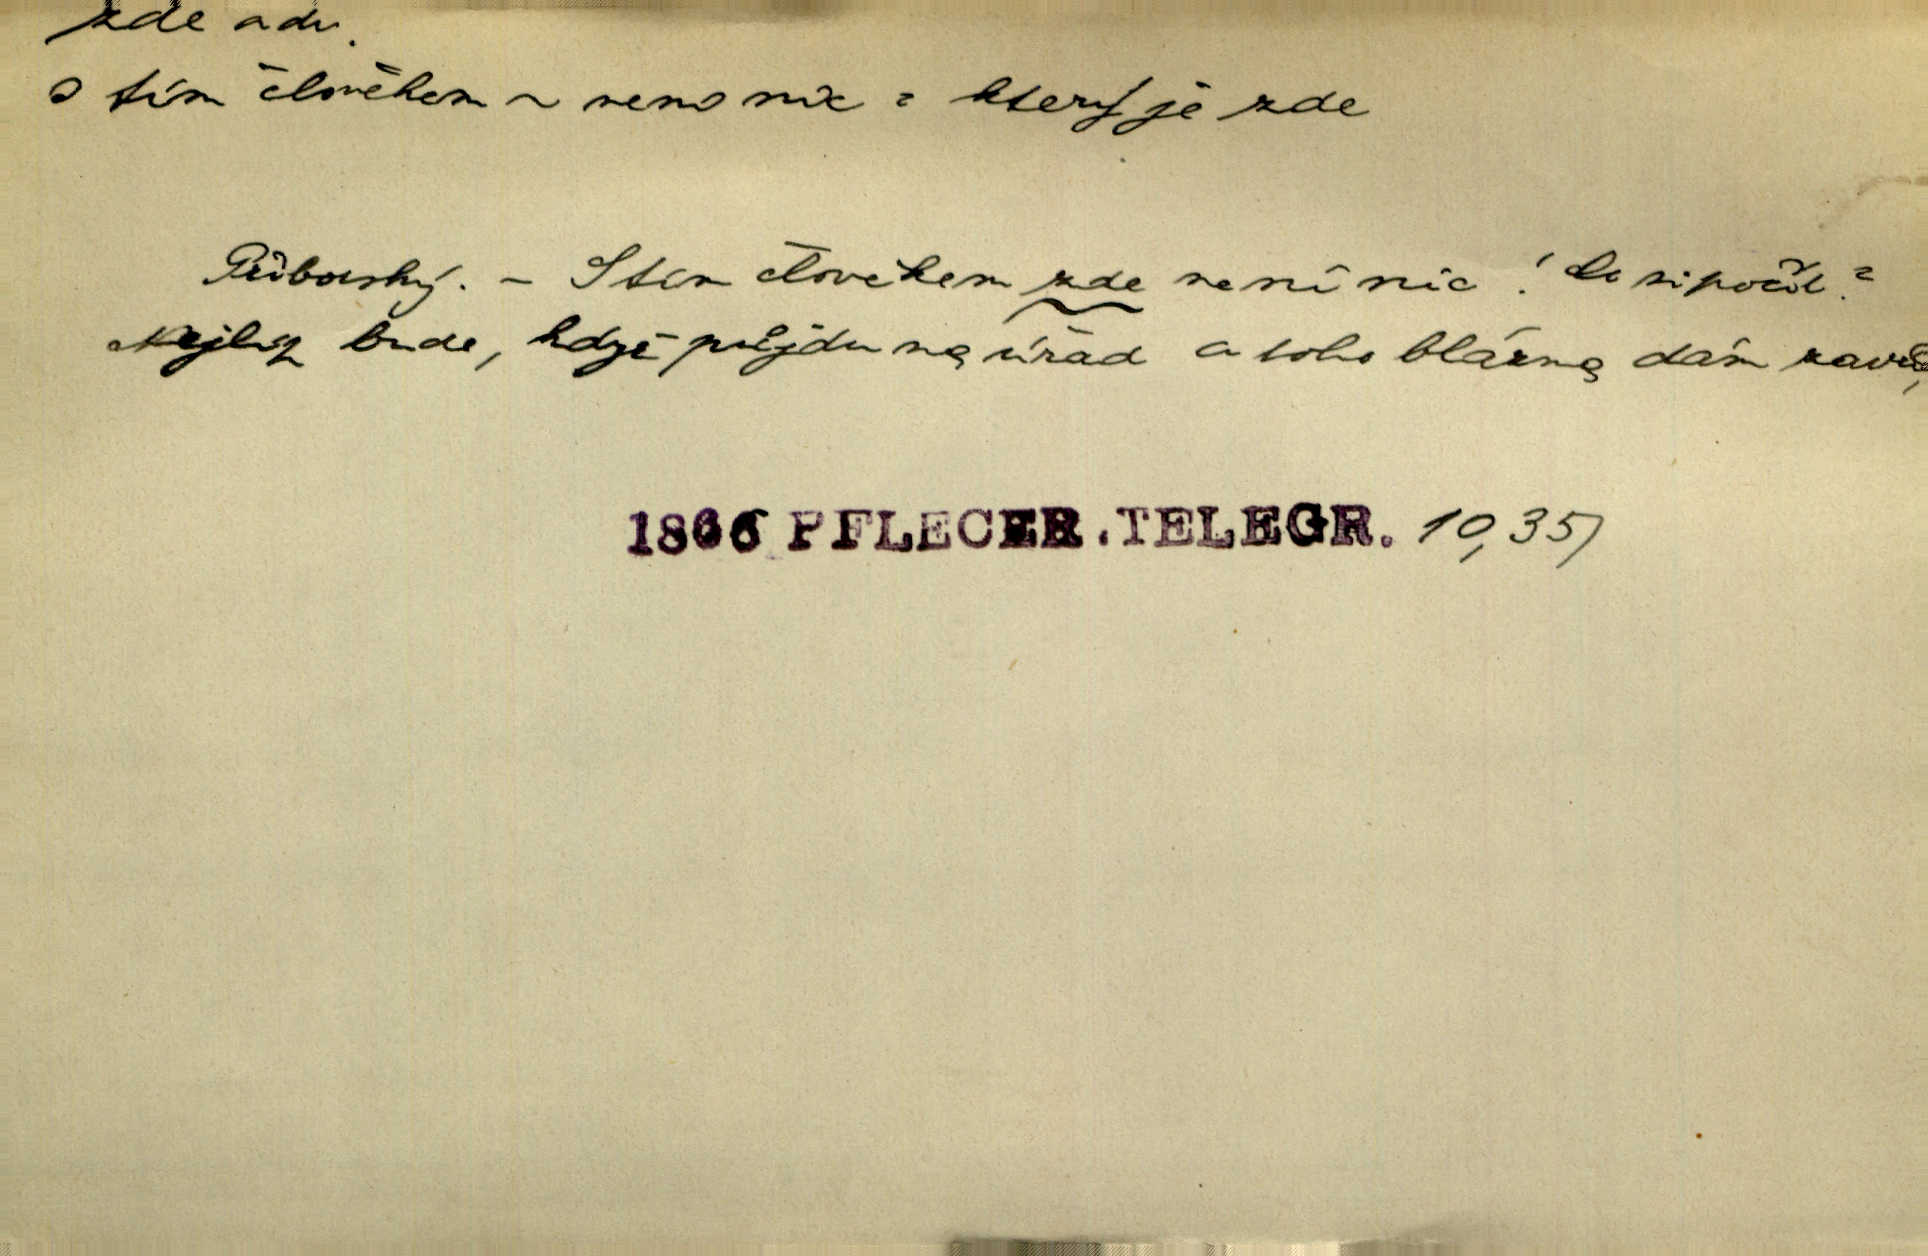 zde adv.
s tím člověkem ~ není nic = který je zde
Příborský. - S tím člověkem zde není nic! Co si počít?
Nejlíp bude, když půjdu na úřad a toho blázna dám zavřít,
1866 PFLEGER.TELEGR. 10,35)